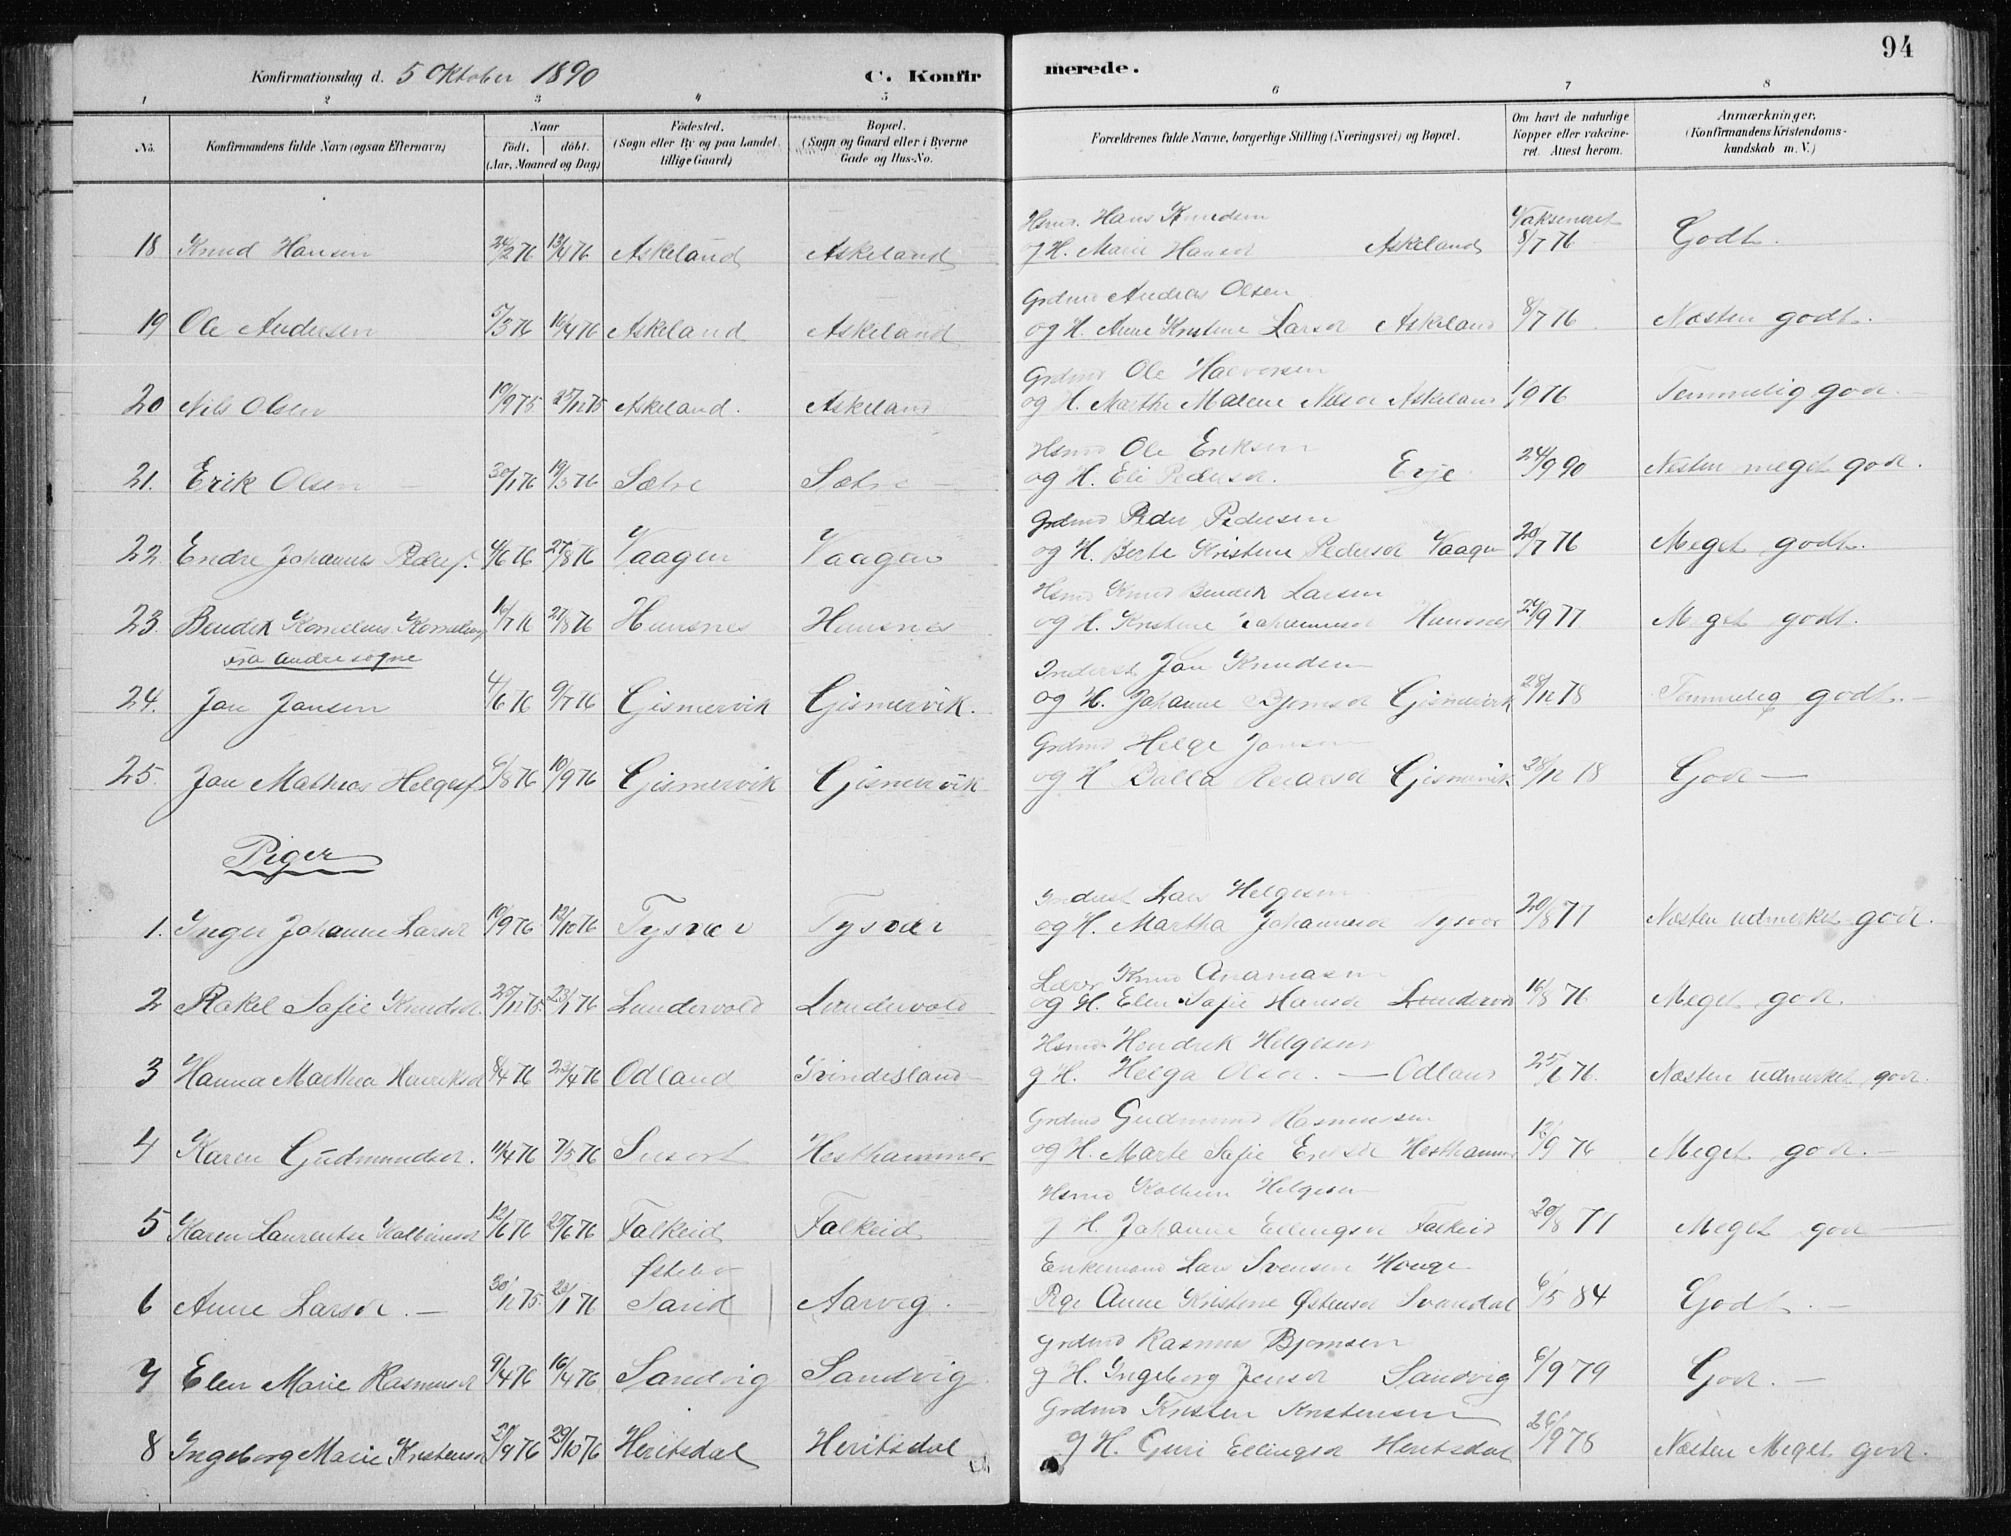 94
Konfirmationsdag d. 5 Oktober 1890 C. Konfirmerede.
1 2 3 4 5 6 7 8
No. Konfirmandens fulde Navn (ogsaa Efternavn) Naar født. døbt. (Aar, Maaned og Dag) Fødested. (Sogn eller By og paa Landet tillige Gaard) Bopæl. (Sogn og Gaard eller i Byerne Gade og Hus-No. Forældrenes fulde Navne, borgerlige Stilling (Næringsvei) og Bopæl. Om havt de naturlige Kopper eller vakcineret. Attest herom. Anmærkninger, (Konfirmandens Kristendomskundskab m. V.)
Hsmd. Hans Knudsen Vaksineret
18 Knud Hansen 24/2 76 13/4 76 Askeland Askeland g H. Marie Hansd Askeland 8/7 76 Godt.
Grdmd Andreas Olsen
19 Ole Andersen 5/3 76 16/4 76 Askeland Askeland og H. Anne Kristine Larsd Askeland 8/7 76 Næsten godt.
Grdmd Ole Halvorsen
20 Nils Olsen 19/9 75 25/12 75 Askeland. Askeland og H. Marthe Malene Nilsd Askeland 1/9 76 Temmelig godt.
Hsmd Ole Eriksen
21. Erik Olsen 30/1 76 19/3 76 Sætre Sætre og H. Eli Pedersd. Erje 24/9 90 Næsten meget godt.
Grdmd Peder Pedersen
22 Endre Johannes Peders. 4/6 76 27/8 76 Vaagen Vaagen og H. Berte Kristine Pedersd Vaagen 20/7 76 Meget godt.
Hsmd Knud Bendik Larsen
23. Bendik Kornelius 16/7 76 27/8 76 Hunsnes Hunsnes og H. Kristine Johannesd Hunsnes 24/9 77 Meget godt.
Fra andre sogne
Inderst Jan Knudsen
24. Jan Jansen 4/6 76 9/7 76 Gismervik Gismervik. og H. Johanne Bjørnsd Gismervik 28/12 78 Temmelig godt.
Grdmd Helge Jansen
25. Jan Mathias Helges. 6/8 76 10/9 76 Gismervik Gismervik og H Gismervik 28/12 78 Godt
Piger
Inderst Lars Helgesen
1. Inger Johanne Larsd 19/9 76 12/10 76 Tysvær Tysvær og H. Martha Johannesd Tysvær 20/8 77 Næsten udmerket godt.
Lærer Knud
2 Rakel Sofie Knudsd. 25/12 75 23/1 76 Lundervold Lundervold og H. Elen Sofie Hansd Lundervold 16/8 76 Meget godt.
Hsmd. Hendrik Helgesen
3 Hanna Malthea Henriksd 8/4 76 23/4 76 Odland g H. Helga Olsd. Odland 25/6 76. Næsten udmerket godt.
Grdmd Gudmund Rasmussen
4 Karen Gudmundsd. 11/4 76 7/5 76 Susort Hesthammer og H. Marte Sofie Eriksd Hesthammer 12/9 76 Meget godt.
Hsmd Kolbein Helgesen
5 Karen Laurentse Kolbeinsd 12/6 76 25/6 76 Falkeid Falkeid g H. Johanne Ellingsd Falkeid 20/8 77 Meget godt
Østebø Enkemand Lars Svensen Houge
6 Anne Larsd. 30/12 75. 23/1 76 Sand Aarveg. Pige Anne Kristine Østensd Svandal 6/5 84 Godt.
Grdmd Rasmus Bjørnsen
7 Elen Marie Rasmusd 9/4 76 16/4 76 Sandvig Sandvig g H. Ingeborg Jensd Sandvig 6/9 79 Godt.
Grdmd Kristen Kristensen
8 Ingeborg Marie Kristensd 21/9 76 29/10 76 Heritsdal Heritsdal g H. Guri Ellingsd Heritsdal 26/9 78 Næsten Meget godt.